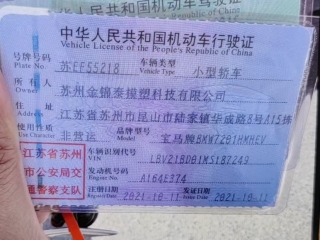 中华人民共和国机动车行驶证
Vehicle License of the People's Republic of China
号牌号码 苏EF55218 车辆类型 小型轿车
Plate No. Vehicle Type
所有人 苏州金锦泰橡塑科技有限公司
Owner
住址 江苏省苏州市昆山市陆家镇华成路8号A15栋
使用性质 非营运 品牌型号 宝马牌BMW7201HMHEV
Use Character Model
江苏省苏州 车辆识别代号 LBV21BD01MS187249
VIN
市公安局交 发动机号码 A164E374
Engine No.
通警察支队 注册日期 2021-10-11 发证日期 2021-10-11
Register Date Issue Date